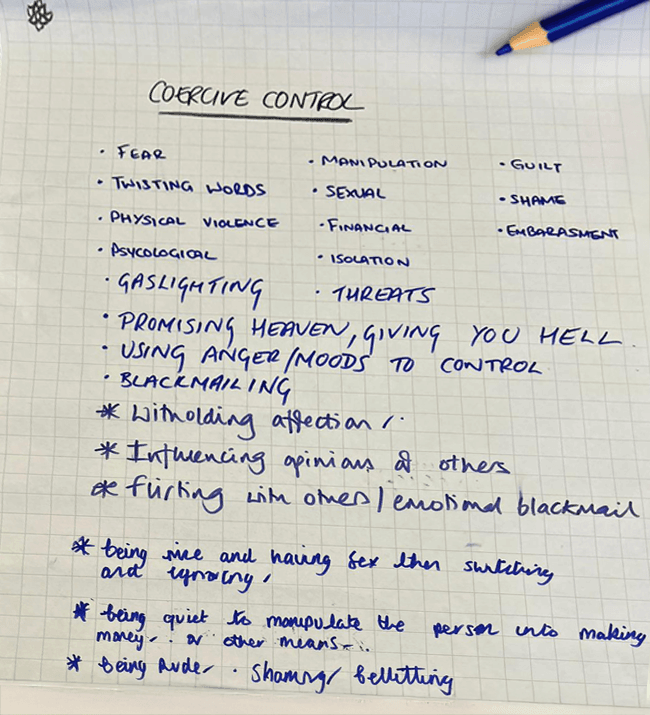 COERCIVE CONTROL
• FEAR • MANIPULATION • GUILT
• TWISTING WORDS • SEXUAL • SHAME
• PHYSICAL VIOLENCE • FINANCIAL • EMBARASMENT
• PSYCOLOGICAL • ISOLATION
• GASLIGHTING • THREATS
• PROMISING HEAVEN, GIVING YOU HELL.
• USING ANGER/MOODS TO CONTROL
• BLACKMAILING
* Witholding affection / .
* Influencing opinions of others
* flirting with others / emotional blackmail
* being nice and having sex then switching
and ignoring /
* being quiet to manipulate the person into making
money / . or other means - ..
* being rude / . Shaming / bellitting